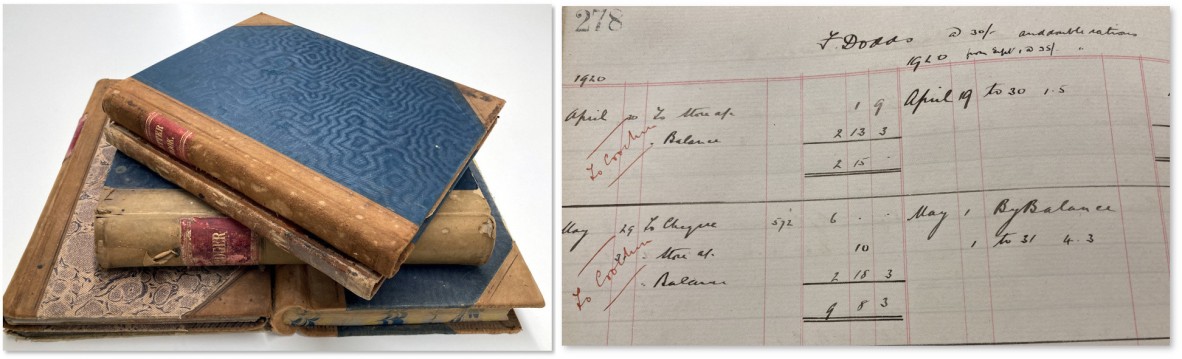 TTER
OOK.
DGER
278
F. Dodds @ 30/- and double rations
from Sept 1 @ 35/- "
1920
1920
April 30 To Store a/c 1 9
April 19 to 30 1.5
" Balance 2 13 3
2 15 -
May 29 To Cheque 592 6 - -
" Store a/c 10
" Balance 2 18 3
9 8 3
May 1 By Balance
1 to 31 4.3